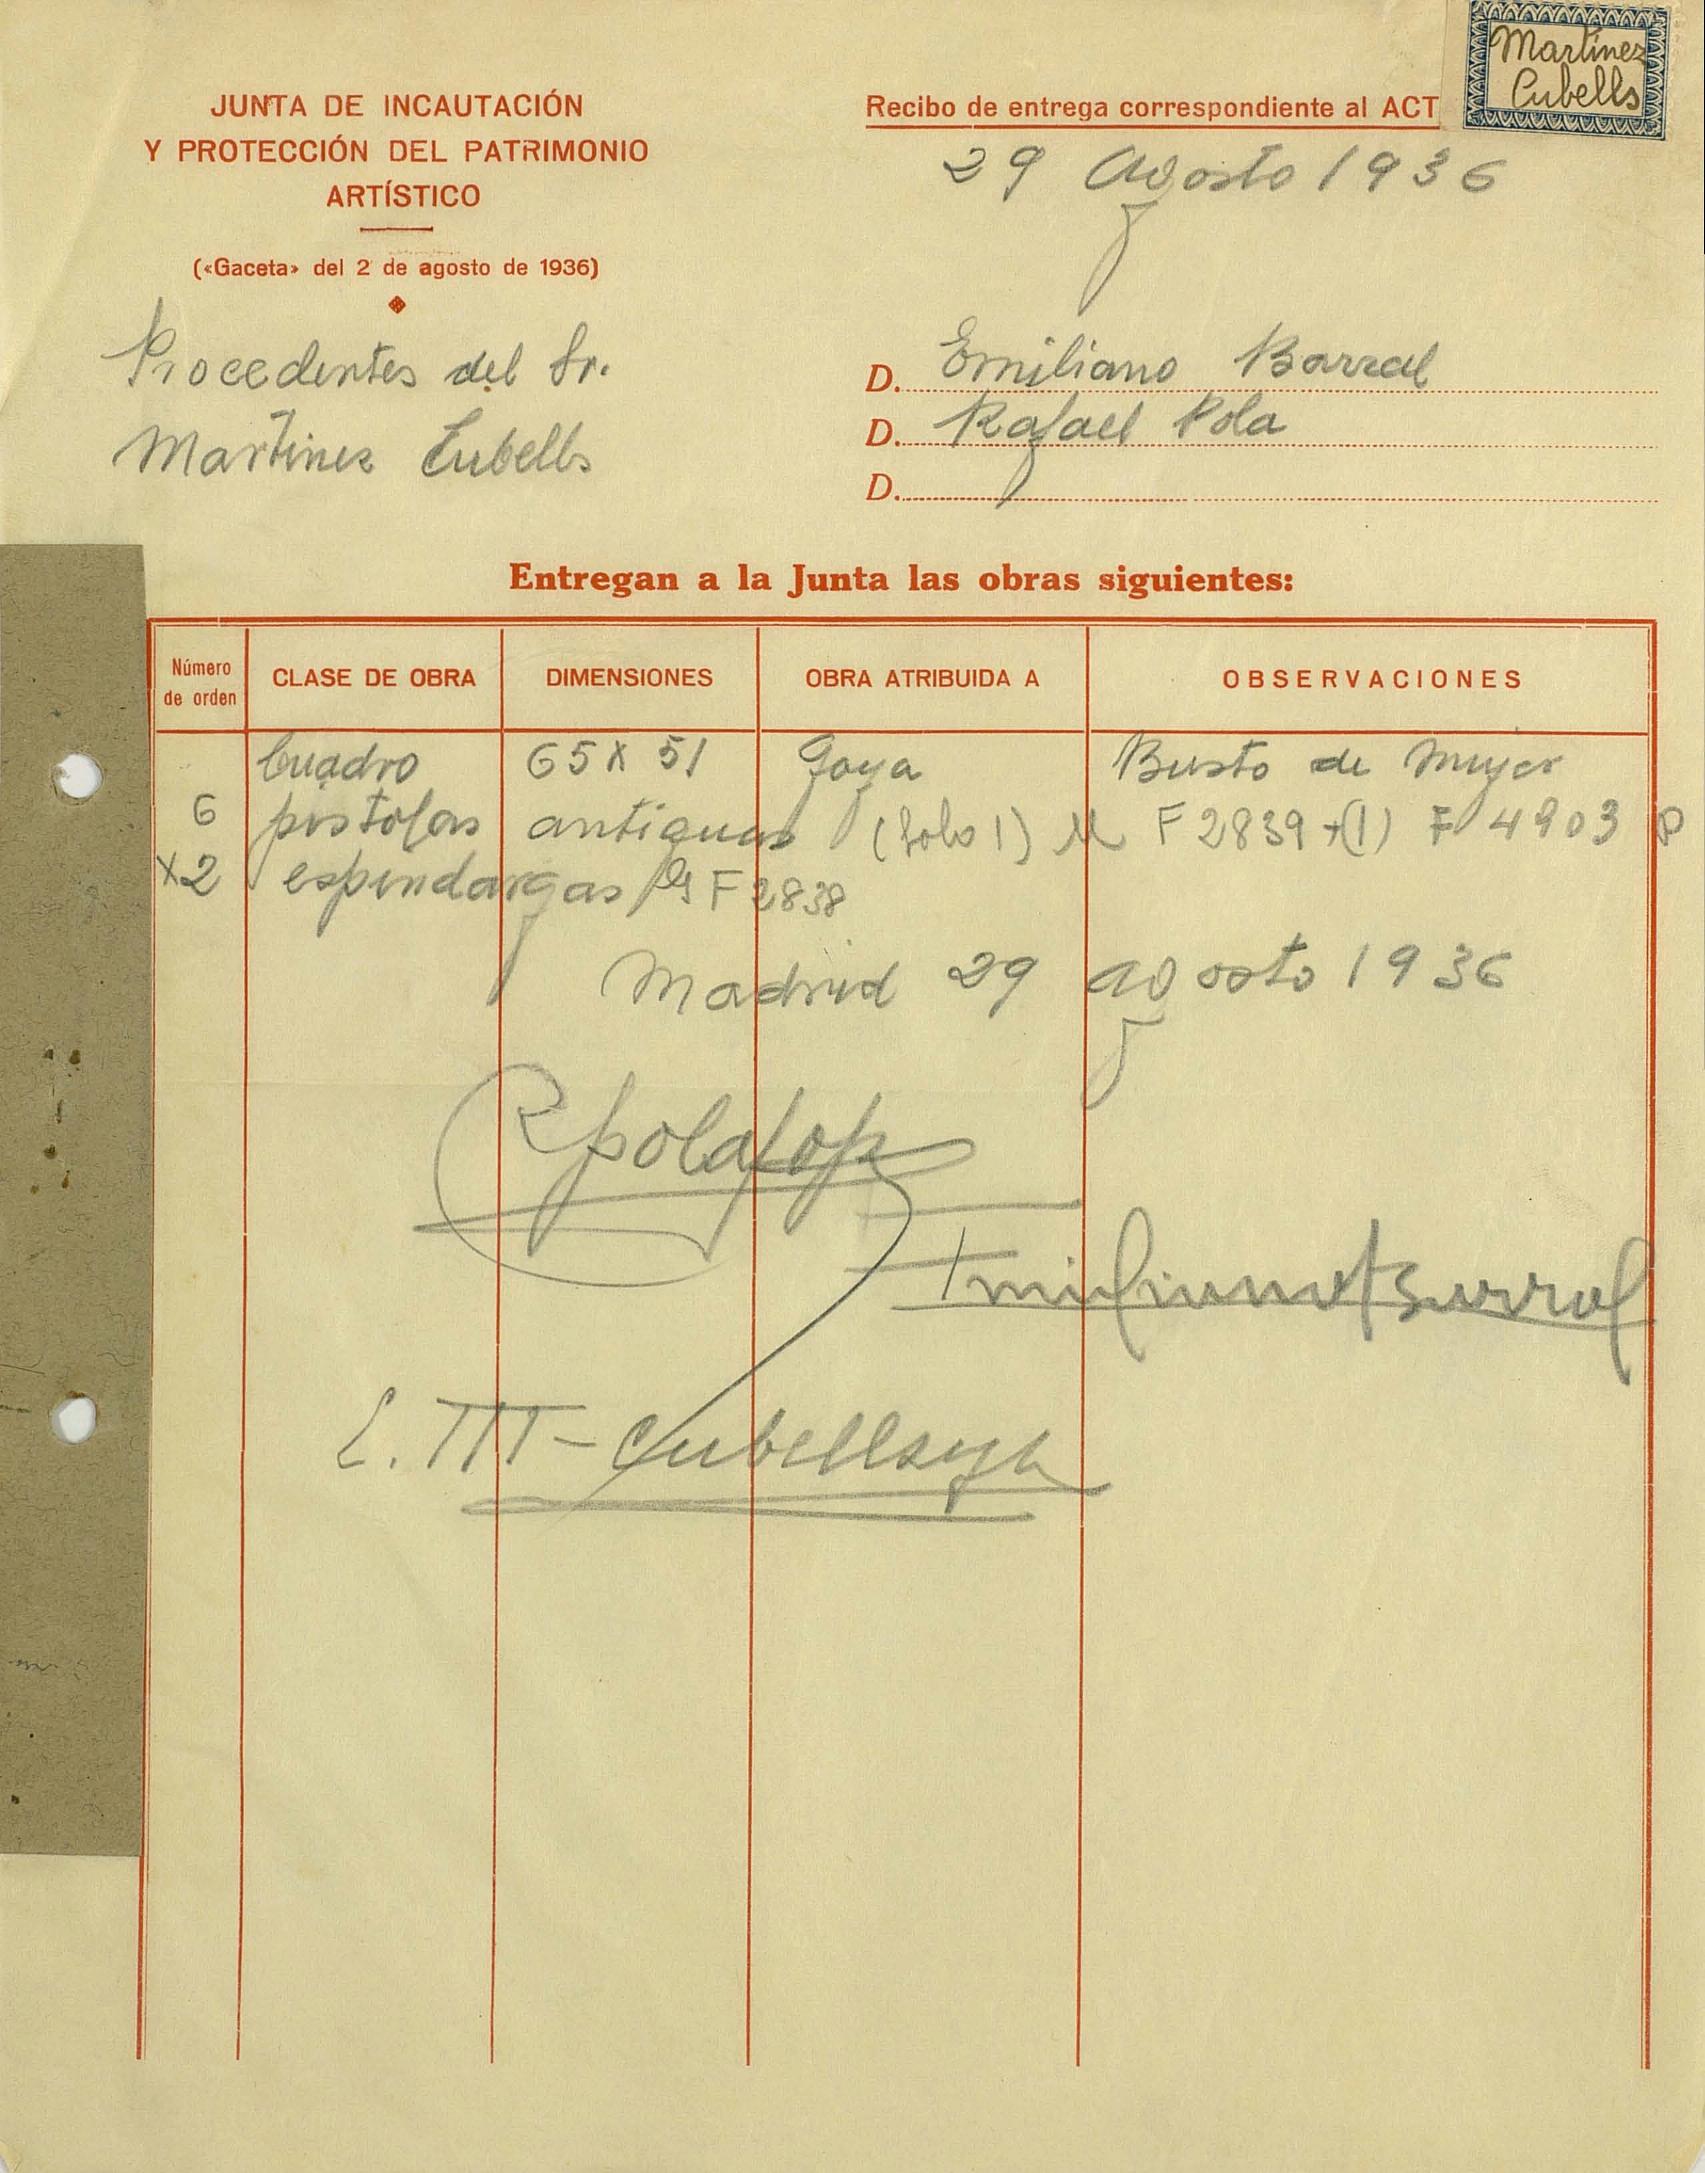 JUNTA DE INCAUTACIÓN
Y PROTECCIÓN DEL PATRIMONIO
ARTÍSTICO
(«Gaceta» del 2 de agosto de 1936)
Procedentes del Sr.
Martinez Cubells
Martinez
Cubells
Recibo de entrega correspondiente al ACT
29 Agosto 1936
D. Emiliano Barral
D. Rafael Pola
D.
Entregan a la Junta las obras siguientes:
Número de orden CLASE DE OBRA DIMENSIONES OBRA ATRIBUIDA A OBSERVACIONES
Cuadro 65 X 51 Goya Busto de Mujer
6 pistolas antiguas (Solo 1) F 2839 + (1) F 4903 P
X2 espindargas F 2838
Madrid 29 agosto 1936
Emiliano Barral